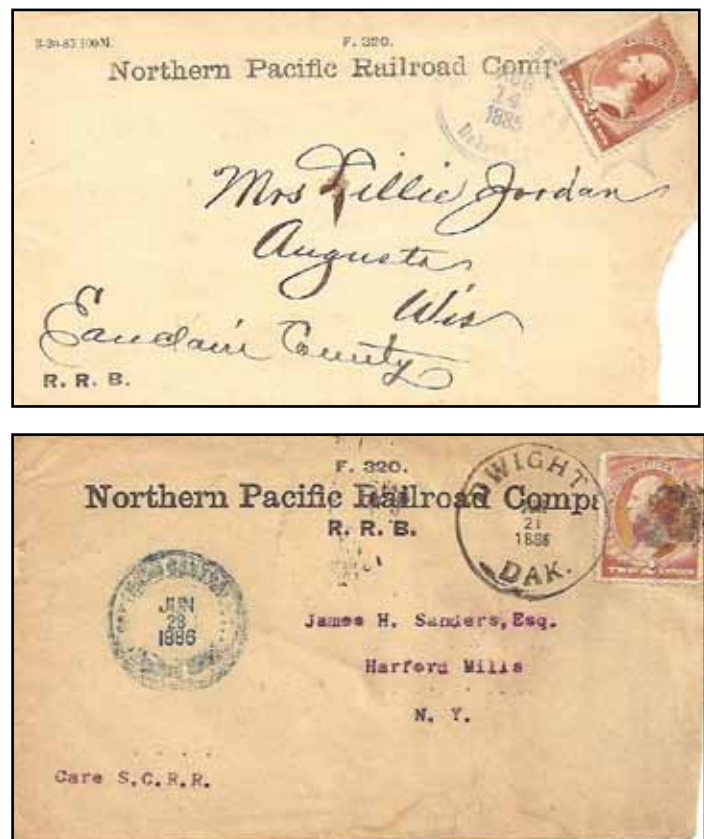 F. 320.
Northern Pacific Railroad Comp
AUG
14
1885
Mrs Lillie Jordan
Augusta
Wis
Eauclaire County
R. R. B.
F. 320.
Northern Pacific Railroad Compa
R. R. B.
DWIGHT
21
1886
DAK.
TWO CENTS
JUN
23
1886
James H. Sanders, Esq.
Harford Mills
N. Y.
Care S.C.R.R.